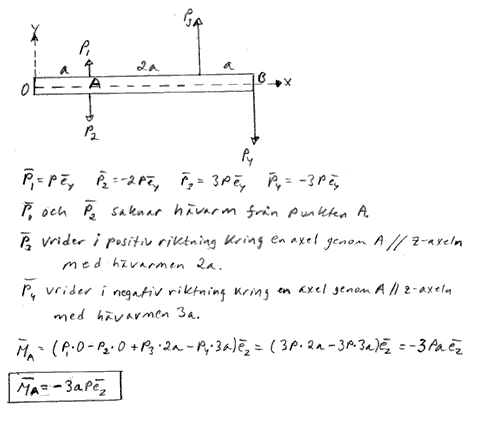 Y
P₃
P₁
a 2a a
O A B X
P₂
P₄
P̄₁ = Pēy P̄₂ = -2Pēy P̄₃ = 3Pēy P̄₄ = -3Pēy
P̄₁ och P̄₂ saknar hävarm från punkten A.
P̄₃ vrider i positiv riktning kring en axel genom A // z-axeln
med hävarmen 2a.
P̄₄ vrider i negativ riktning kring en axel genom A // z-axeln
med hävarmen 3a.
M̄A = (P₁·0 - P₂·0 + P₃·2a - P₄·3a)ēz = (3P·2a - 3P·3a)ēz = -3Paēz
M̄A = -3aPēz